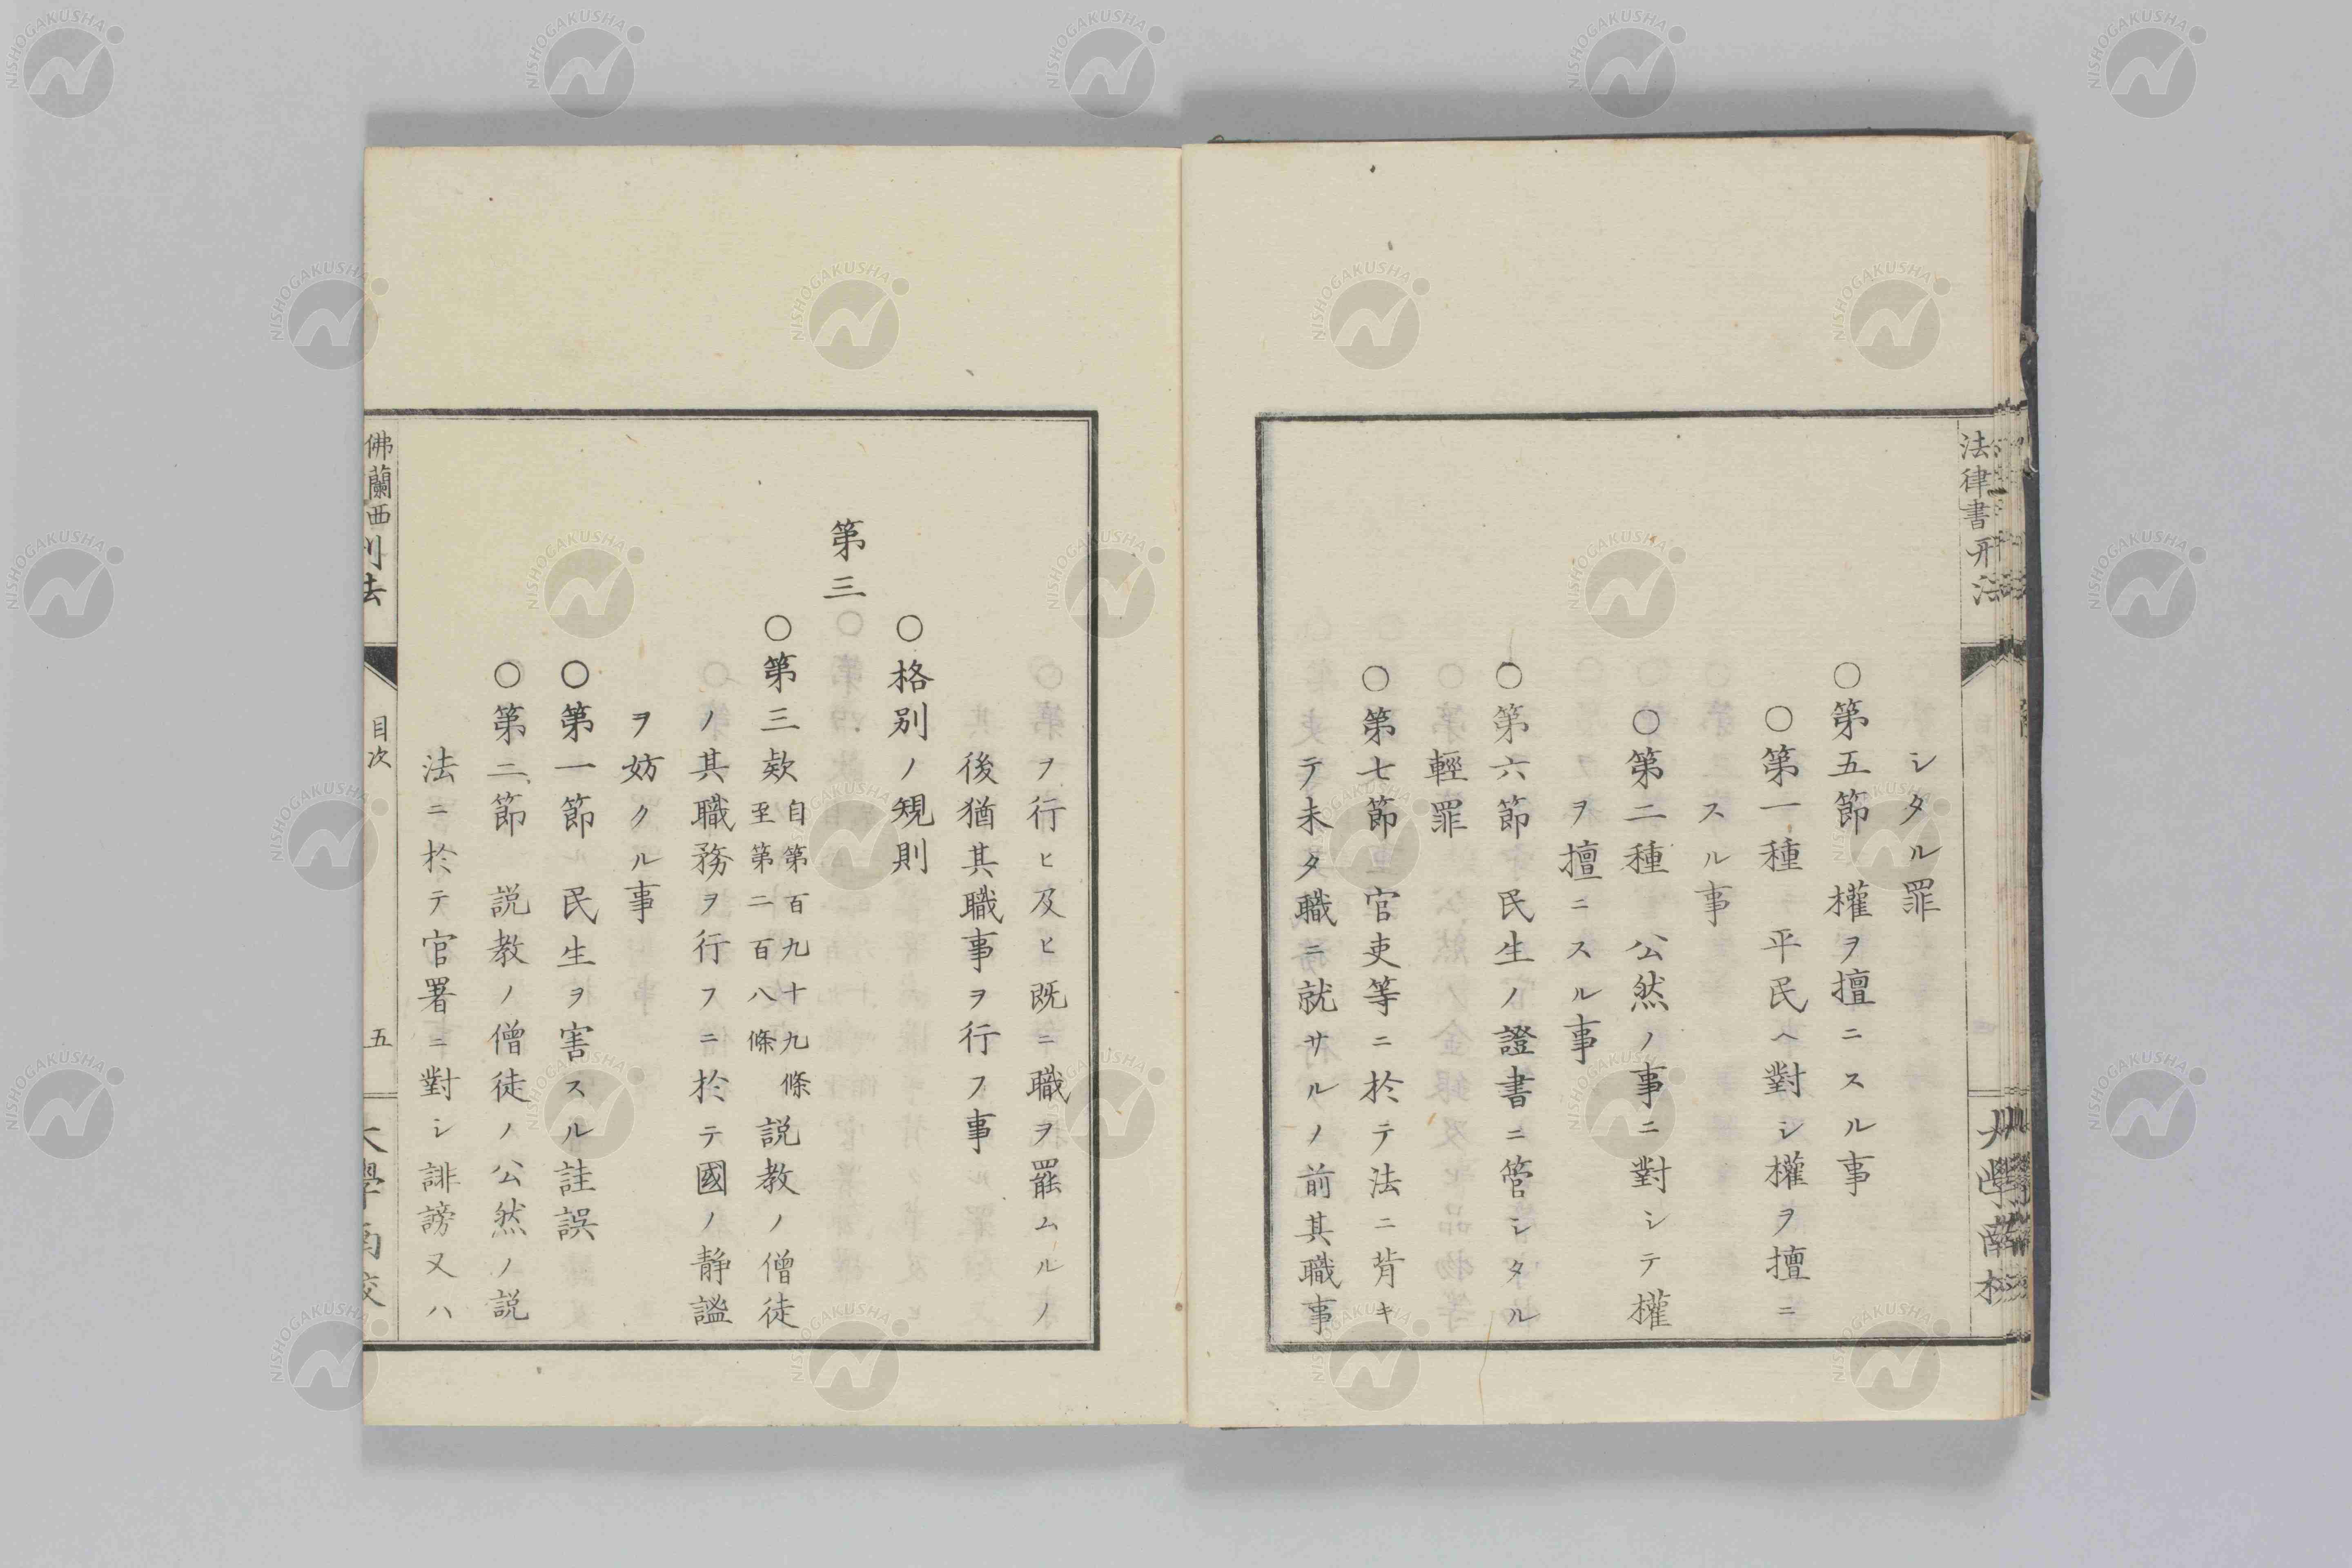 法律書刑法
シタル罪
○第五節 權ヲ擅ニスル事
○第一種 平民ヘ對シ權ヲ擅ニ
スル事
○第二種 公然ノ事ニ對シテ權
ヲ擅ニスル事
○第六節 民生ノ證書ニ管シタル
輕罪
○第七節 官吏等ニ於テ法ニ背キ
テ未タ職ニ就サルノ前其職事
ヲ行ヒ及ヒ既ニ職ヲ罷ムルノ
後猶其職事ヲ行フ事
○格別ノ規則
第三
○第三款 自第百九十九條
至第二百八條 説教ノ僧徒
ノ其職務ヲ行フニ於テ國ノ静謐
ヲ妨クル事
○第一節 民生ヲ害スル詿誤
○第二節 説教ノ僧徒ノ公然ノ説
法ニ於テ官署ニ對シ誹謗又ハ
佛蘭西刑法 目次 五 大學南校
NISHOGAKUSHA